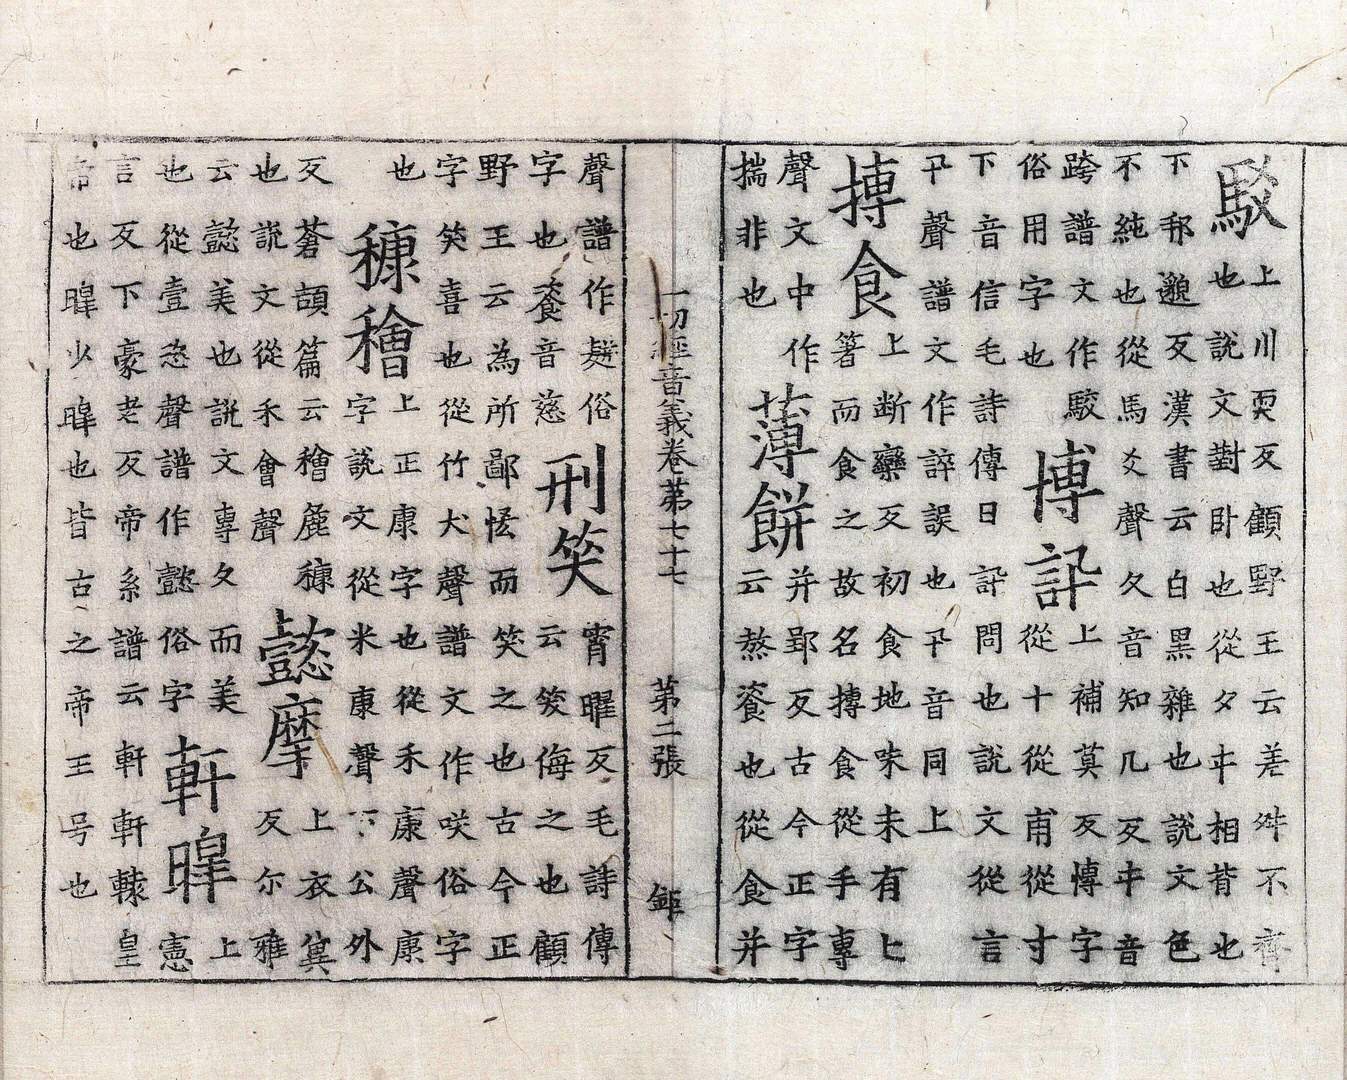 駁
上川耎反顧野王云差舛不齊
也說文對卧也從夕㐄相背也
下邦邈反漢書云白黑雜也說文色
不純也從馬爻聲夂音知几反㐄音
跨譜文作駮
俗用字也
博訊
上補莫反愽字
從十從甫從寸
下音信毛詩傳曰訊問也說文從言
卂聲譜文作誶誤也卂音同上
摶食
上断欒反初食地味未有匕
箸而食之故名摶食從手專
聲文中作
揣非也
薄餅
并郢反古今正字
云熬餈也從食并
一切經音義卷第七十七 第二張
聲譜作俗
字也餈音慈
刑笑
宵曜反毛詩傳
云笑侮之也顧
野王云為所鄙恠而笑之也古今正
字笑喜也從竹犬聲譜文作咲俗字
也
穅𥢶
上正康字也從禾康聲康
字說文從米康聲下公外
反蒼頡篇云𥢶麁穅
也說文從禾會聲
懿摩
上衣冀
反尔雅
云懿美也說文專久而美
也從壹恣聲譜作懿俗字
軒皥
上
憲
言反下豪老反帝系譜云軒軒轅皇
帝也皥少皥也皆古之帝王号也